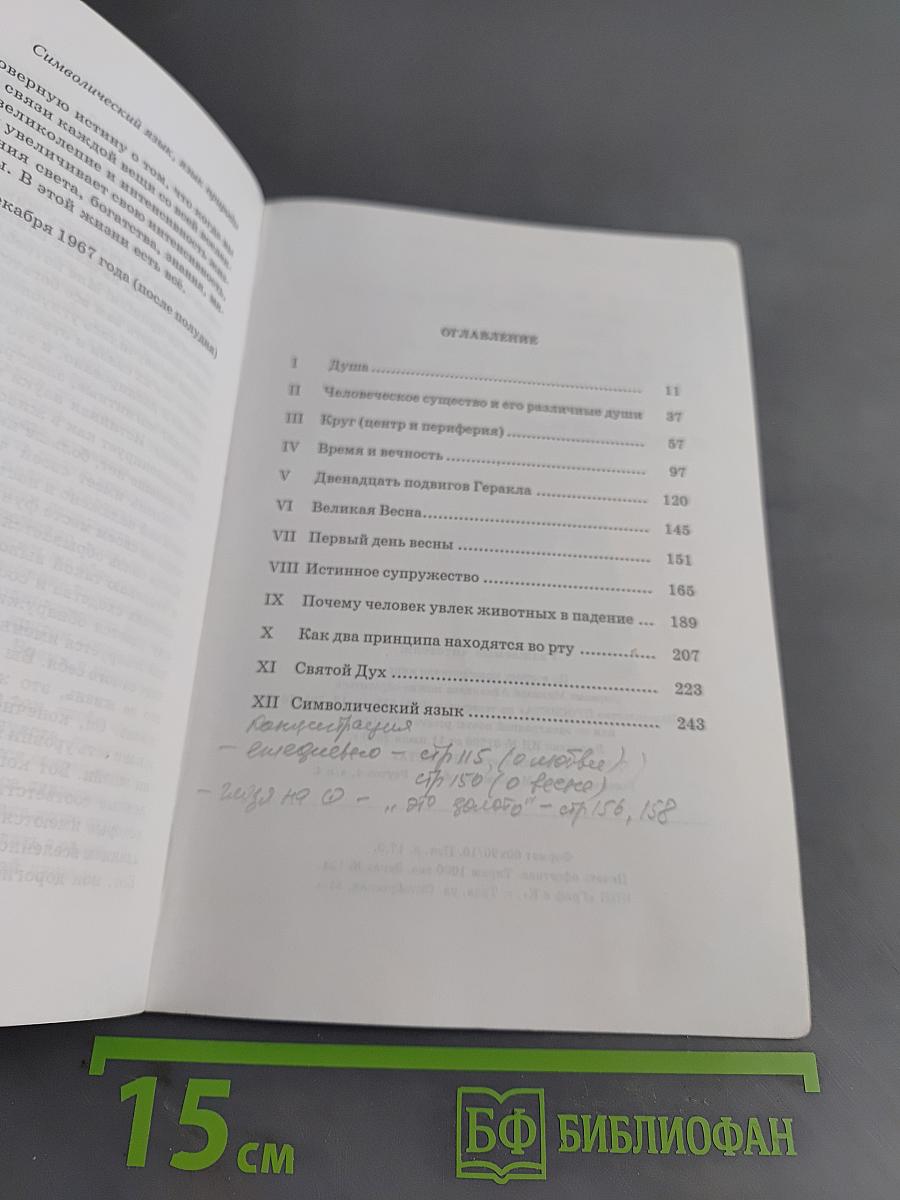 Символический язык, язык природы
оверную истину о том, что когда вы
связи каждой вещи со всей вселен-
великолепие и интенсивность жиз-
увеличивает свою интенсивность,
ния света, богатства, знания, ма-
ы. В этой жизни есть всё.
екабря 1967 года (после полудня)
ОГЛАВЛЕНИЕ
I Душа 11
II Человеческое существо и его различные души 37
III Круг (центр и периферия) 57
IV Время и вечность 97
V Двенадцать подвигов Геракла 120
VI Великая Весна 145
VII Первый день весны 151
VIII Истинное супружество 165
IX Почему человек увлек животных в падение ... 189
X Как два принципа находятся во рту 207
XI Святой Дух 223
XII Символический язык 243
Концентрация
– ежедневно – стр 115, (о любви)
стр 150 (о весне)
– глядя на ⊙ – „это золото" – стр 156, 158
15 см
БФ БИБЛИОФАН